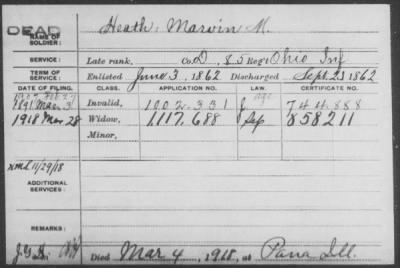 DEAD
NAME OF SOLDIER: Heath, Marvin M.
SERVICE: Late rank, Co. D, 85 Reg't Ohio Inf
TERM OF SERVICE: Enlisted June 3, 1862 Discharged Sept. 23 1862
DATE OF FILING. CLASS. APPLICATION NO. LAW. CERTIFICATE NO.
age
1891 Mar 3 Invalid, 1002.331 744.888
1918 Mar 28 Widow, 1117.688 858211
Minor,
11/29/18
ADDITIONAL SERVICES:
REMARKS:
Died Mar 4, 1918, at Pana Ill.